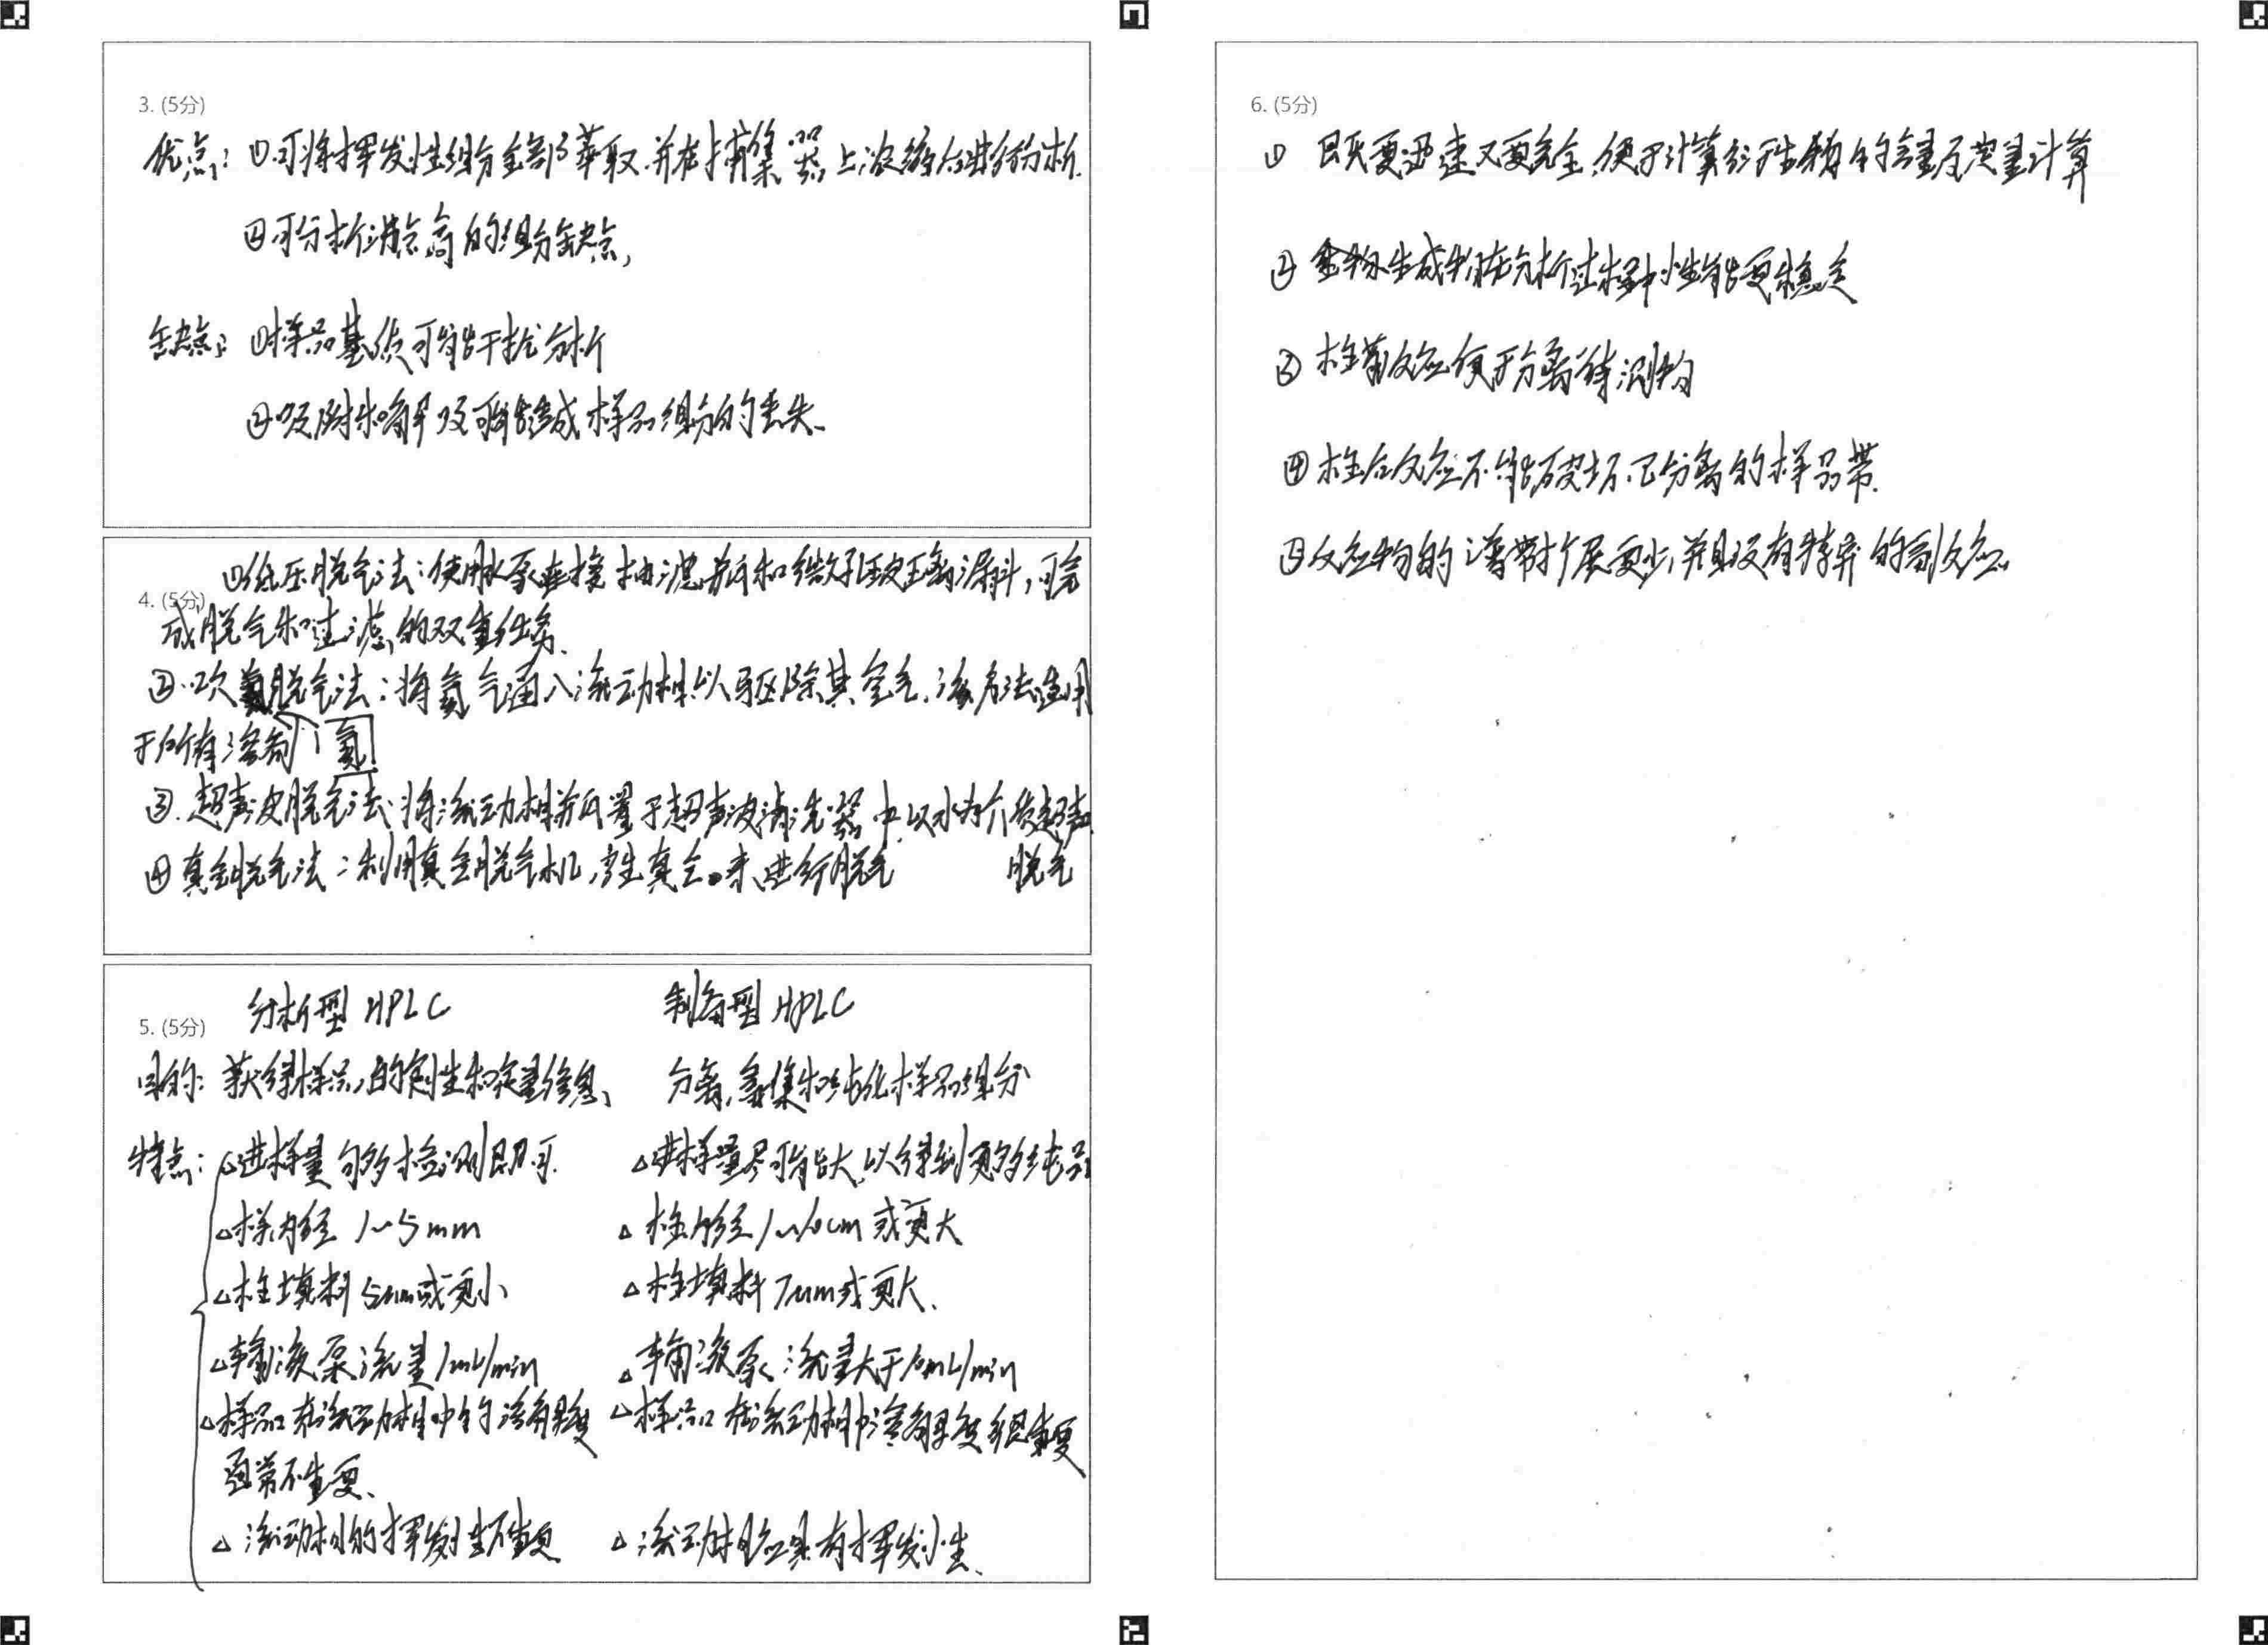 3. (5分)
优点: ①可将挥发性组分全部萃取.并在捕集器上浓缩后进行分析.
②可分析沸点高的组分缺点,
缺点: ①样品基质可能干扰分析
②吸附和解吸可能造成样品组分的丢失、
①低压脱气法:使用水泵连接抽滤瓶和微孔玻璃漏斗,可完
4. (5分)
成脱气和过滤的双重任务、
②.吹氦脱气法:将氦气通入流动相以驱除其空气.该方法适用
于所有溶剂 氦
③.超声波脱气法:将流动相瓶置于超声波清洗器中.以水为介质超声
脱气
④真空脱气法:利用真空脱气机,产生真空来进行脱气
分析型 HPLC 制备型 HPLC
5. (5分)
目的: 获得样品的定性和定量信息、 分离,富集和纯化样品组分
特点: △进样量句够检测即可. △进样量尽可能大,以得到更多纯品
△样内径 1~5mm △柱内径 1~10cm 或更大
△柱填料 5um或更小 △柱填料 7um或更大、
△输液泵流量 1mL/min △输液泵流量大于10mL/min
△样品在流动相中的溶解度 △样品在流动相中溶解度很重要
通常不重要、
△流动相的挥发性不重要 △流动相应具有挥发性、
6. (5分)
① 既要迅速又要完全,便于计算衍生物的含量及定量计算
② 生成物在分析过程中性能要稳定
③ 柱前反应便于分离待测物
④ 柱后反应不能破坏已分离的样品带.
⑤反应物的谱带扩展要少,并且没有特异的副反应.